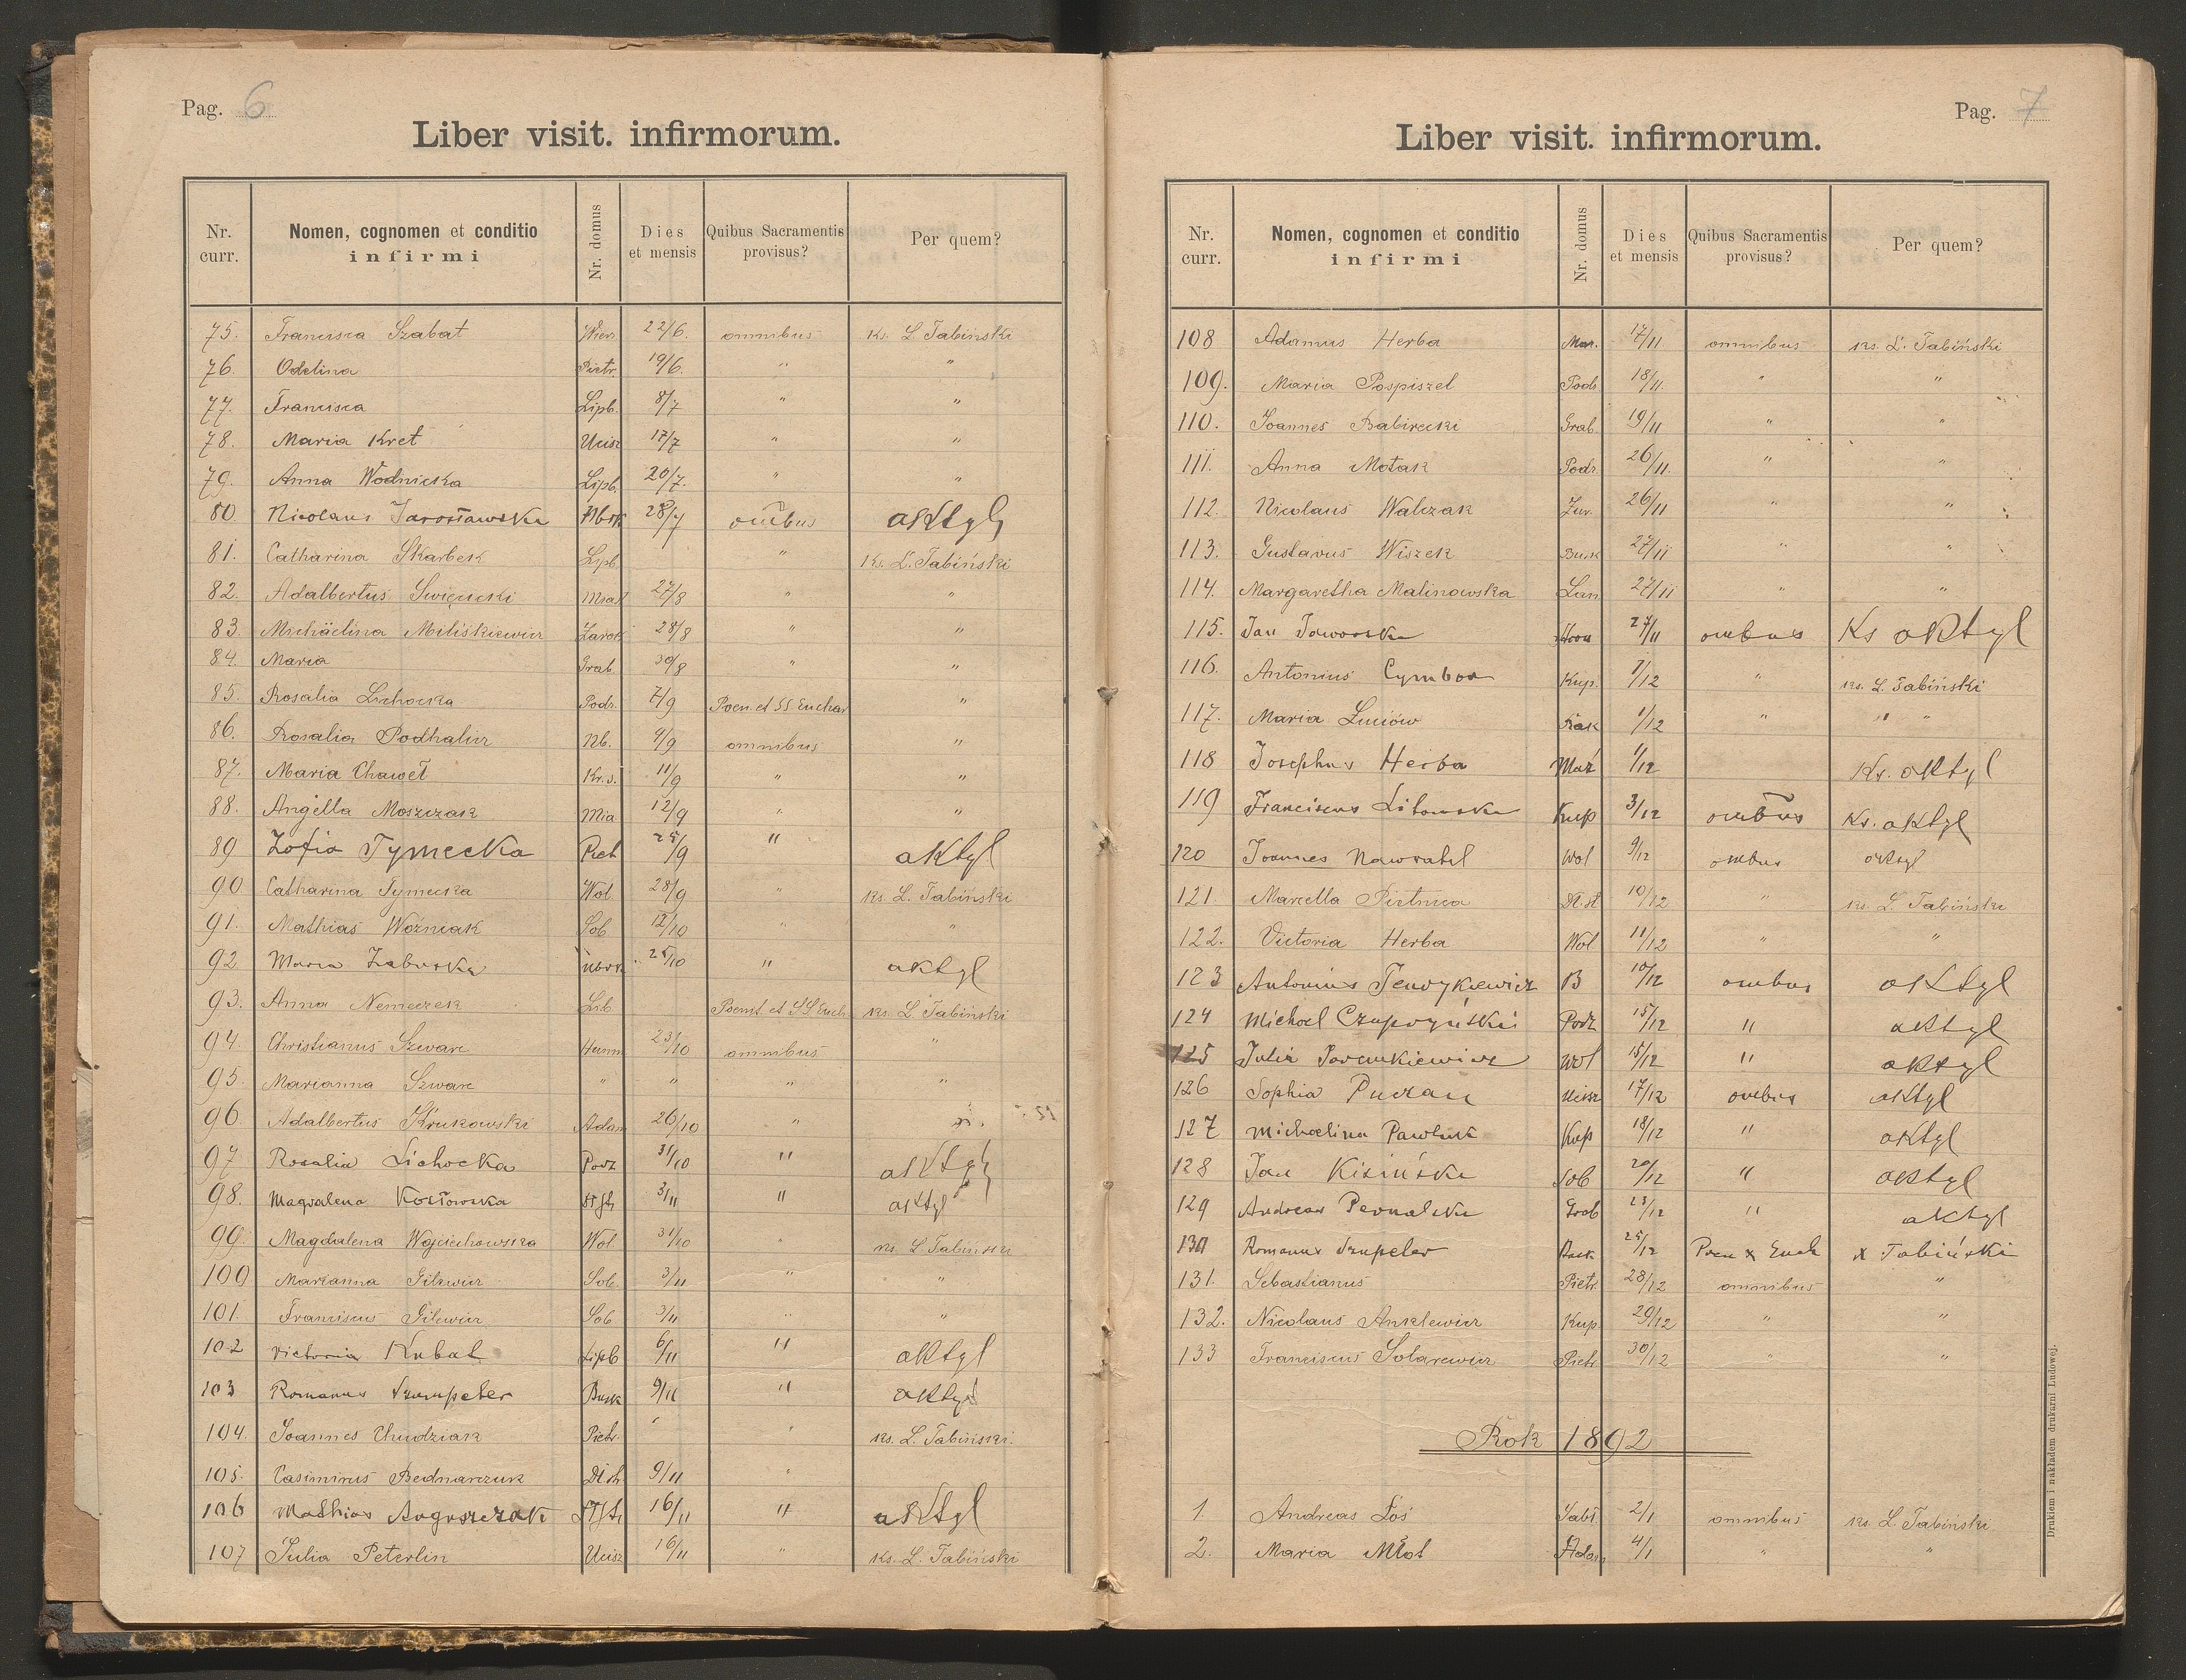 Pag. 6
Liber visit. infirmorum.
Nr. curr. Nomen, cognomen et conditio infirmi Nr. domus Dies et mensis Quibus Sacramentis provisus? Per quem?
75. Francisca Szabat Wierz. 22/6. omnibus ks. L. Tabiński
76. Odelina Pietr. 19/6. " "
77. Francisca Lipb. 8/7 " "
78. Maria Kret Ucisz 17/7 " "
79. Anna Wodnicka Lipb. 20/7. " "
80. Nicolaus Jarosławski 28/7 omibus aktyl
81. Catharina Skarbek Lipb. " Ks. L. Tabiński
82. Adalbertus Święcicki 27/8 " "
83. Michäelina Miliśkiewicz 28/8 " "
84. Maria Grab. 30/8 " "
85. Rosalia Lichocka Podz. 7/9 Poen. et SS Euchar "
86. Rosalia Podhalicz Nb. 9/9 omnibus "
87. Maria Chaweł Kr. s. 11/9 " "
88. Angella Moszczak Mia 12/9 " "
89 Zofia Tymecka Piet 25/9 " aktyl
90 Catharina Tymecka Wol 28/9 " ks. L. Tabiński
91. Mathias Woźniak Sob 12/10 " "
92 Maria Zaburska 25/10 " aktyl
93. Anna Nemeczek Lib. Poenit. et SS Euch. ks. L. Tabiński
94. Christianus Szwarc Humn 23/10 omnibus "
95. Marianna Szwarc " " " "
96. Adalbertus Krukowski Adam 26/10 " "
97 Rosalia Lichocka Podz 31/10 " aktyl
98. Magdalena Kosłowska 3/11 " aktyl
99. Magdalena Wojciechowska Wol. 31/10 " ks. L Tabiński
100 Marianna Gilewicz Sob. 3/11 " "
101. Franciscus Gilewicz Sob. 3/11 " "
102 Victoria Kubat Lipb 6/11 " aktyl
103 Romanus Szumpeter Busk 9/11 " aktyl
104. Joannes Chudziak Pietr. " " ks. L. Tabiński.
105. Casimirus Bednarczuk Dł. st. 9/11 "
106 Mathias Augusczak 16/11 " aktyl
107 Julia Peterlin Ucisz 16/11 " ks. L. Tabiński
Pag. 7
Liber visit. infirmorum.
Nr. curr. Nomen, cognomen et conditio infirmi Nr. domus Dies et mensis Quibus Sacramentis provisus? Per quem?
108 Adamus Herba Mar. 17/11 omnibus ks. L. Tabiński
109. Maria Pospiszel Podz. 18/11. " "
110. Joannes Babirecki Grab. 19/11 " "
111. Anna Motak Podz. 26/11. " "
112. Nicolaus Walczak Zur. 26/11 " "
113. Gustavus Wiszek Busk 27/11 " "
114. Margaretha Malinowska Lan 27/11 " "
115. Jan Jaworski 27/11 ombus Ks aktyl
116. Antonius Cymbor Kup. 1/12 " ks. L. Tabiński
117. Maria Łuciów Rak 1/12 " " "
118 Josephus Herba Mar 1/12 Ks. aktyl
119 Franciscus Litowski Kup 3/12 ombus Ks. aktyl
120 Joannes Nawratil Wol 9/12 ombus aktyl
121. Marcella Pietnica Dł. st 10/12 " ks. L. Tabiński
122. Victoria Herba Wol 11/12 " "
123 Antonius B 10/12 ombus aktyl
124 Michael Czupryński Podz 15/12 " aktyl
125 Julia Wol 15/12 " aktyl
126 Sophia Puczan Ucisz 17/12 ombus aktyl
127 Michaelina Pawluk Kup 18/12 " aktyl
128 Jan Kisiński Sob 20/12 " aktyl
129 Andreas Pernalski Grab 23/12 " aktyl
130 Romanus Szupeter Busk 25/12 Poen x Euch x Tabiński
131. Sebastianus Pietr. 28/12 omnibus "
132. Nicolaus Anklewicz Kup. 29/12 " "
133 Franciscus Solarewicz Pietr. 30/12 " "
Rok 1892
1. Andreas Łoś Sabł. 2/1 omnibus ks. L. Tabiński
2. Maria Młot Adam 4/1 " "
Drukiem i nakładem drukarni Ludowej.